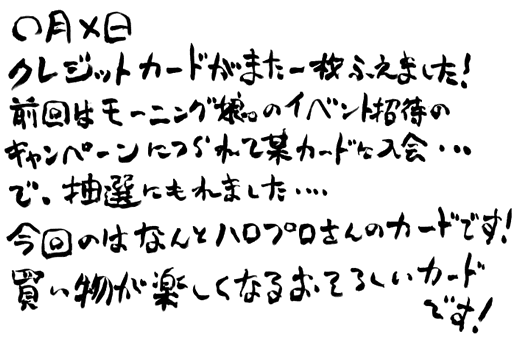 〇月×日
クレジットカードがまた一枚ふえました!
前回はモーニング娘。のイベント招待の
キャンペーンにつられて某カードに入会・・・
で、抽選にもれました・・・・
今回のはなんとハロプロさんのカードです!
買い物が楽しくなるおそろしいカード
です!